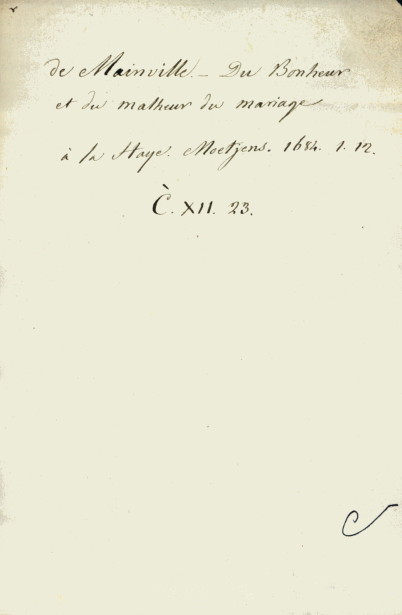 de Mainville – Du Bonheur
et du malheur du mariage
à la Haye. Moetjens. 1684. 1. 12.
C. XII. 23.